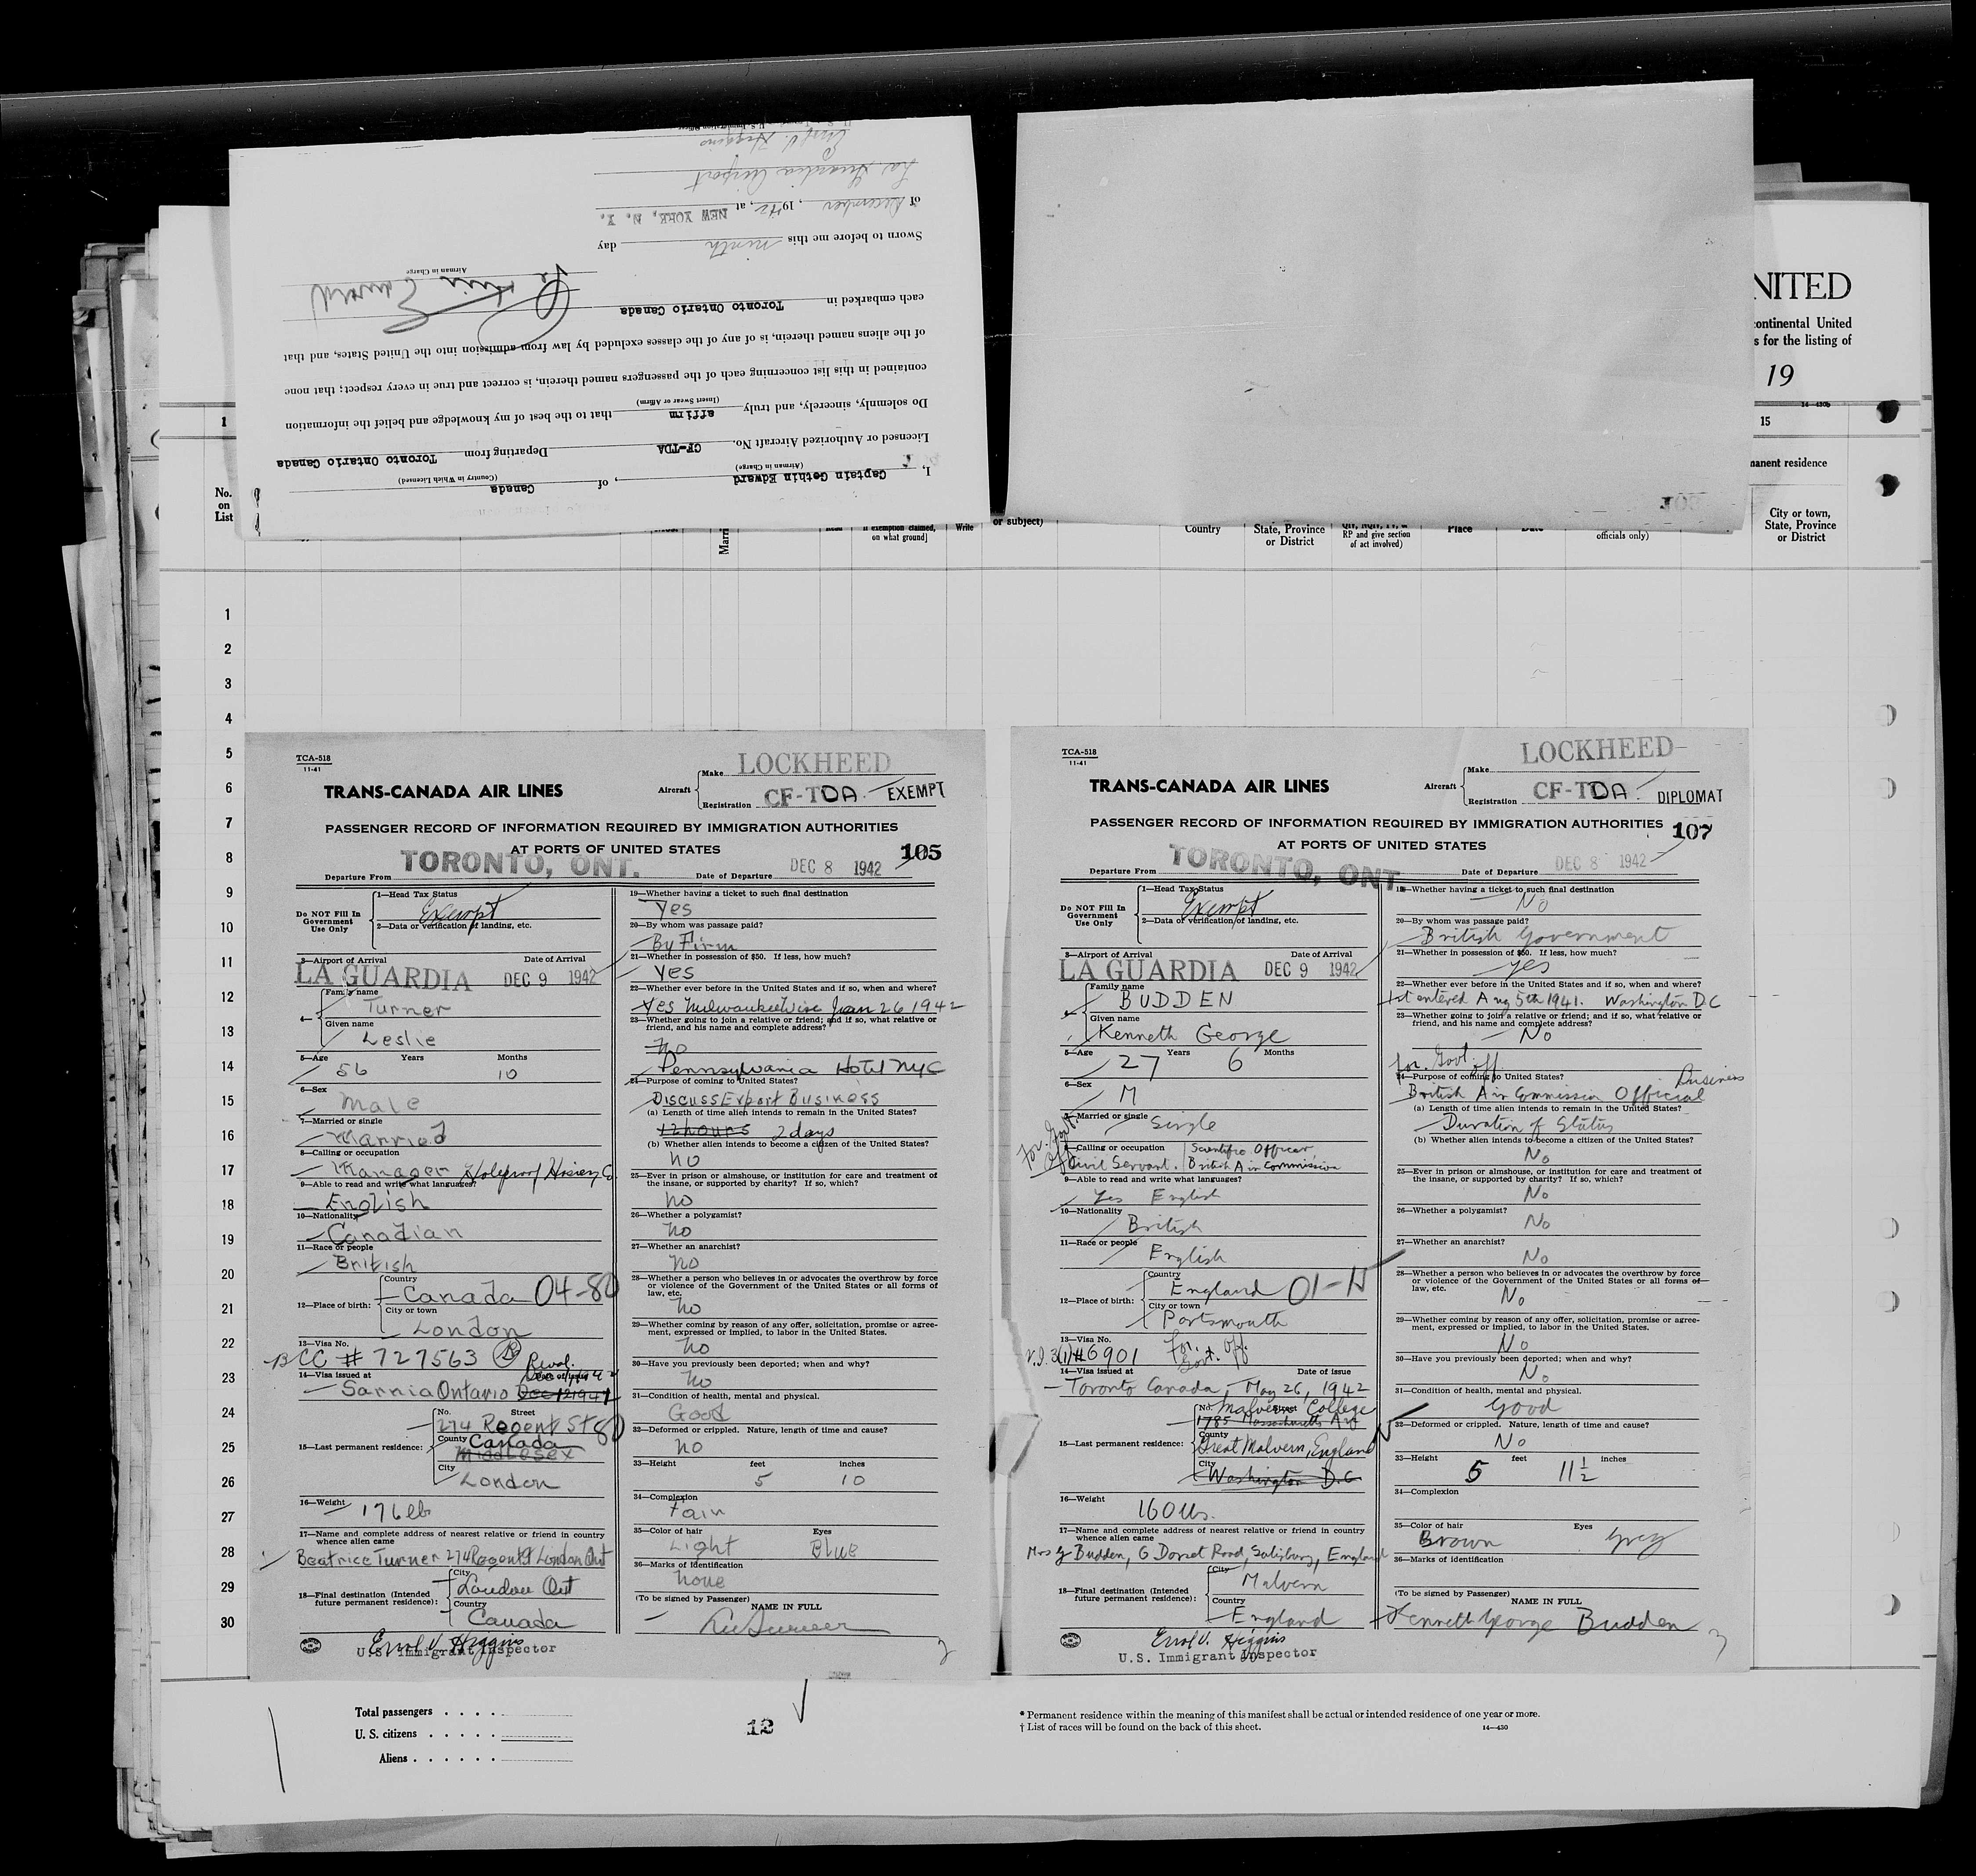 I, Captain Gethin Edward, of Canada
(Airman in Charge) (Country in Which Licensed)
Licensed or Authorized Aircraft No. CF-TDA Departing from Toronto Ontario Canada
Do solemnly, sincerely, and truly affirm that to the best of my knowledge and belief the information
(Insert Swear or Affirm)
contained in this list concerning each of the passengers named therein, is correct and true in every respect; that none
of the aliens named therein, is of any of the classes excluded by law from admission into the United States, and that
each embarked in Toronto Ontario Canada
Airman in Charge
Sworn to before me this ninth day
of December, 1942, at NEW YORK, N. Y.
La Guardia Airport
Errol V. Higgins
NITED
continental United
s for the listing of
19
14—430b
1
15
manent residence
No.
on
List
Marri
Read
if exemption claimed,
on what ground]
Write
or subject)
Country
State, Province
or District
QIV, NQIV, PV, or
RP and give section
of act involved)
Place
Date
officials only)
City or town,
State, Province
or District
1
2
3
4
5
6
7
8
9
10
11
12
13
14
15
16
17
18
19
20
21
22
23
24
25
26
27
28
29
30
TCA-518
11-41
TRANS-CANADA AIR LINES
Aircraft
Make LOCKHEED
Registration CF-TDA. EXEMPT
PASSENGER RECORD OF INFORMATION REQUIRED BY IMMIGRATION AUTHORITIES
AT PORTS OF UNITED STATES
105
Departure From TORONTO, ONT. Date of Departure DEC 8 1942
Do NOT Fill In
Government
Use Only
1—Head Tax Status
Exempt
2—Data or verification of landing, etc.
3—Airport of Arrival Date of Arrival
LA GUARDIA DEC 9 1942
4—
Family name
Turner
Given name
Leslie
5—Age Years Months
56 10
6—Sex
Male
7—Married or single
Married
8—Calling or occupation
Manager Holeproof Hosiery Co.
9—Able to read and write what languages?
English
10—Nationality
Canadian
11—Race or people
British
12—Place of birth:
Country
Canada 04-80
City or town
London
13—Visa No.
BCC # 727563
14—Visa issued at Date of issue
Sarnia Ontario Dec 12 1941
15—Last permanent residence:
No. Street
274 Regent St 80
County Canada
Middlesex
City
London
16—Weight
176 lb
17—Name and complete address of nearest relative or friend in country
whence alien came
Beatrice Turner 274 Regent St London Ont
18—Final destination (Intended
future permanent residence):
City
London Ont
Country
Canada
Errol V. Higgins
U.S. Immigrant Inspector
19—Whether having a ticket to such final destination
Yes
20—By whom was passage paid?
By Firm
21—Whether in possession of $50. If less, how much?
Yes
22—Whether ever before in the United States and if so, when and where?
Yes Milwaukee Wisc Jan 26 1942
23—Whether going to join a relative or friend; and if so, what relative or
friend, and his name and complete address?
No
Pennsylvania Hotel NYC
24—Purpose of coming to United States?
Discuss Export Business
(a) Length of time alien intends to remain in the United States?
12 hours 2 days
(b) Whether alien intends to become a citizen of the United States?
No
25—Ever in prison or almshouse, or institution for care and treatment of
the insane, or supported by charity? If so, which?
No
26—Whether a polygamist?
No
27—Whether an anarchist?
No
28—Whether a person who believes in or advocates the overthrow by force
or violence of the Government of the United States or all forms of
law, etc.
No
29—Whether coming by reason of any offer, solicitation, promise or agree-
ment, expressed or implied, to labor in the United States.
No
30—Have you previously been deported; when and why?
No
31—Condition of health, mental and physical.
Good
32—Deformed or crippled. Nature, length of time and cause?
No
33—Height feet inches
5 10
34—Complexion
Fair
35—Color of hair Eyes
Light Blue
36—Marks of identification
None
(To be signed by Passenger) NAME IN FULL
TCA-518
11-41
TRANS-CANADA AIR LINES
Aircraft
Make LOCKHEED
Registration CF-TDA. DIPLOMAT
PASSENGER RECORD OF INFORMATION REQUIRED BY IMMIGRATION AUTHORITIES
AT PORTS OF UNITED STATES
107
Departure From TORONTO, ONT. Date of Departure DEC 8 1942
Do NOT Fill In
Government
Use Only
1—Head Tax Status
Exempt
2—Data or verification of landing, etc.
3—Airport of Arrival Date of Arrival
LA GUARDIA DEC 9 1942
Family name
BUDDEN
Given name
Kenneth George
5—Age Years Months
27 6
6—Sex
M
7—Married or single
Single
For. Govt. Off
8—Calling or occupation
Civil Servant. Scientific Officer
British Air Commission
9—Able to read and write what languages?
Yes English
10—Nationality
British
11—Race or people
English
12—Place of birth:
Country
England 01-H
City or town
Portsmouth
13—Visa No.
V.S. 3(1) #6901 For. Govt. Off
14—Visa issued at Date of issue
Toronto Canada, May 26, 1942
15—Last permanent residence:
No. Street
Malvern College
1785 Massachusetts Av
County
Great Malvern, England
City
Washington D.C
16—Weight
160 lbs.
17—Name and complete address of nearest relative or friend in country
whence alien came
Mrs G Budden, 6 Dorset Road, Salisbury, England
18—Final destination (Intended
future permanent residence):
City
Malvern
Country
England
Errol V. Higgins
U.S. Immigrant Inspector
19—Whether having a ticket to such final destination
No
20—By whom was passage paid?
British Government
21—Whether in possession of $50. If less, how much?
Yes
22—Whether ever before in the United States and if so, when and where?
1st entered Aug 5th 1941. Washington DC
23—Whether going to join a relative or friend; and if so, what relative or
friend, and his name and complete address?
No
for. Govt. off
24—Purpose of coming to United States?
British Air Commission Official Business
(a) Length of time alien intends to remain in the United States?
Duration of Status
(b) Whether alien intends to become a citizen of the United States?
No
25—Ever in prison or almshouse, or institution for care and treatment of
the insane, or supported by charity? If so, which?
No
26—Whether a polygamist?
No
27—Whether an anarchist?
No
28—Whether a person who believes in or advocates the overthrow by force
or violence of the Government of the United States or all forms of
law, etc.
No
29—Whether coming by reason of any offer, solicitation, promise or agree-
ment, expressed or implied, to labor in the United States.
No
30—Have you previously been deported; when and why?
No
31—Condition of health, mental and physical.
Good
32—Deformed or crippled. Nature, length of time and cause?
No
33—Height feet inches
5 11½
34—Complexion
35—Color of hair Eyes
Brown Grey
36—Marks of identification
(To be signed by Passenger) NAME IN FULL
Kenneth George Budden
Total passengers . . . .
U. S. citizens . . . . .
Aliens . . . . . .
12
* Permanent residence within the meaning of this manifest shall be actual or intended residence of one year or more.
† List of races will be found on the back of this sheet. 14—430